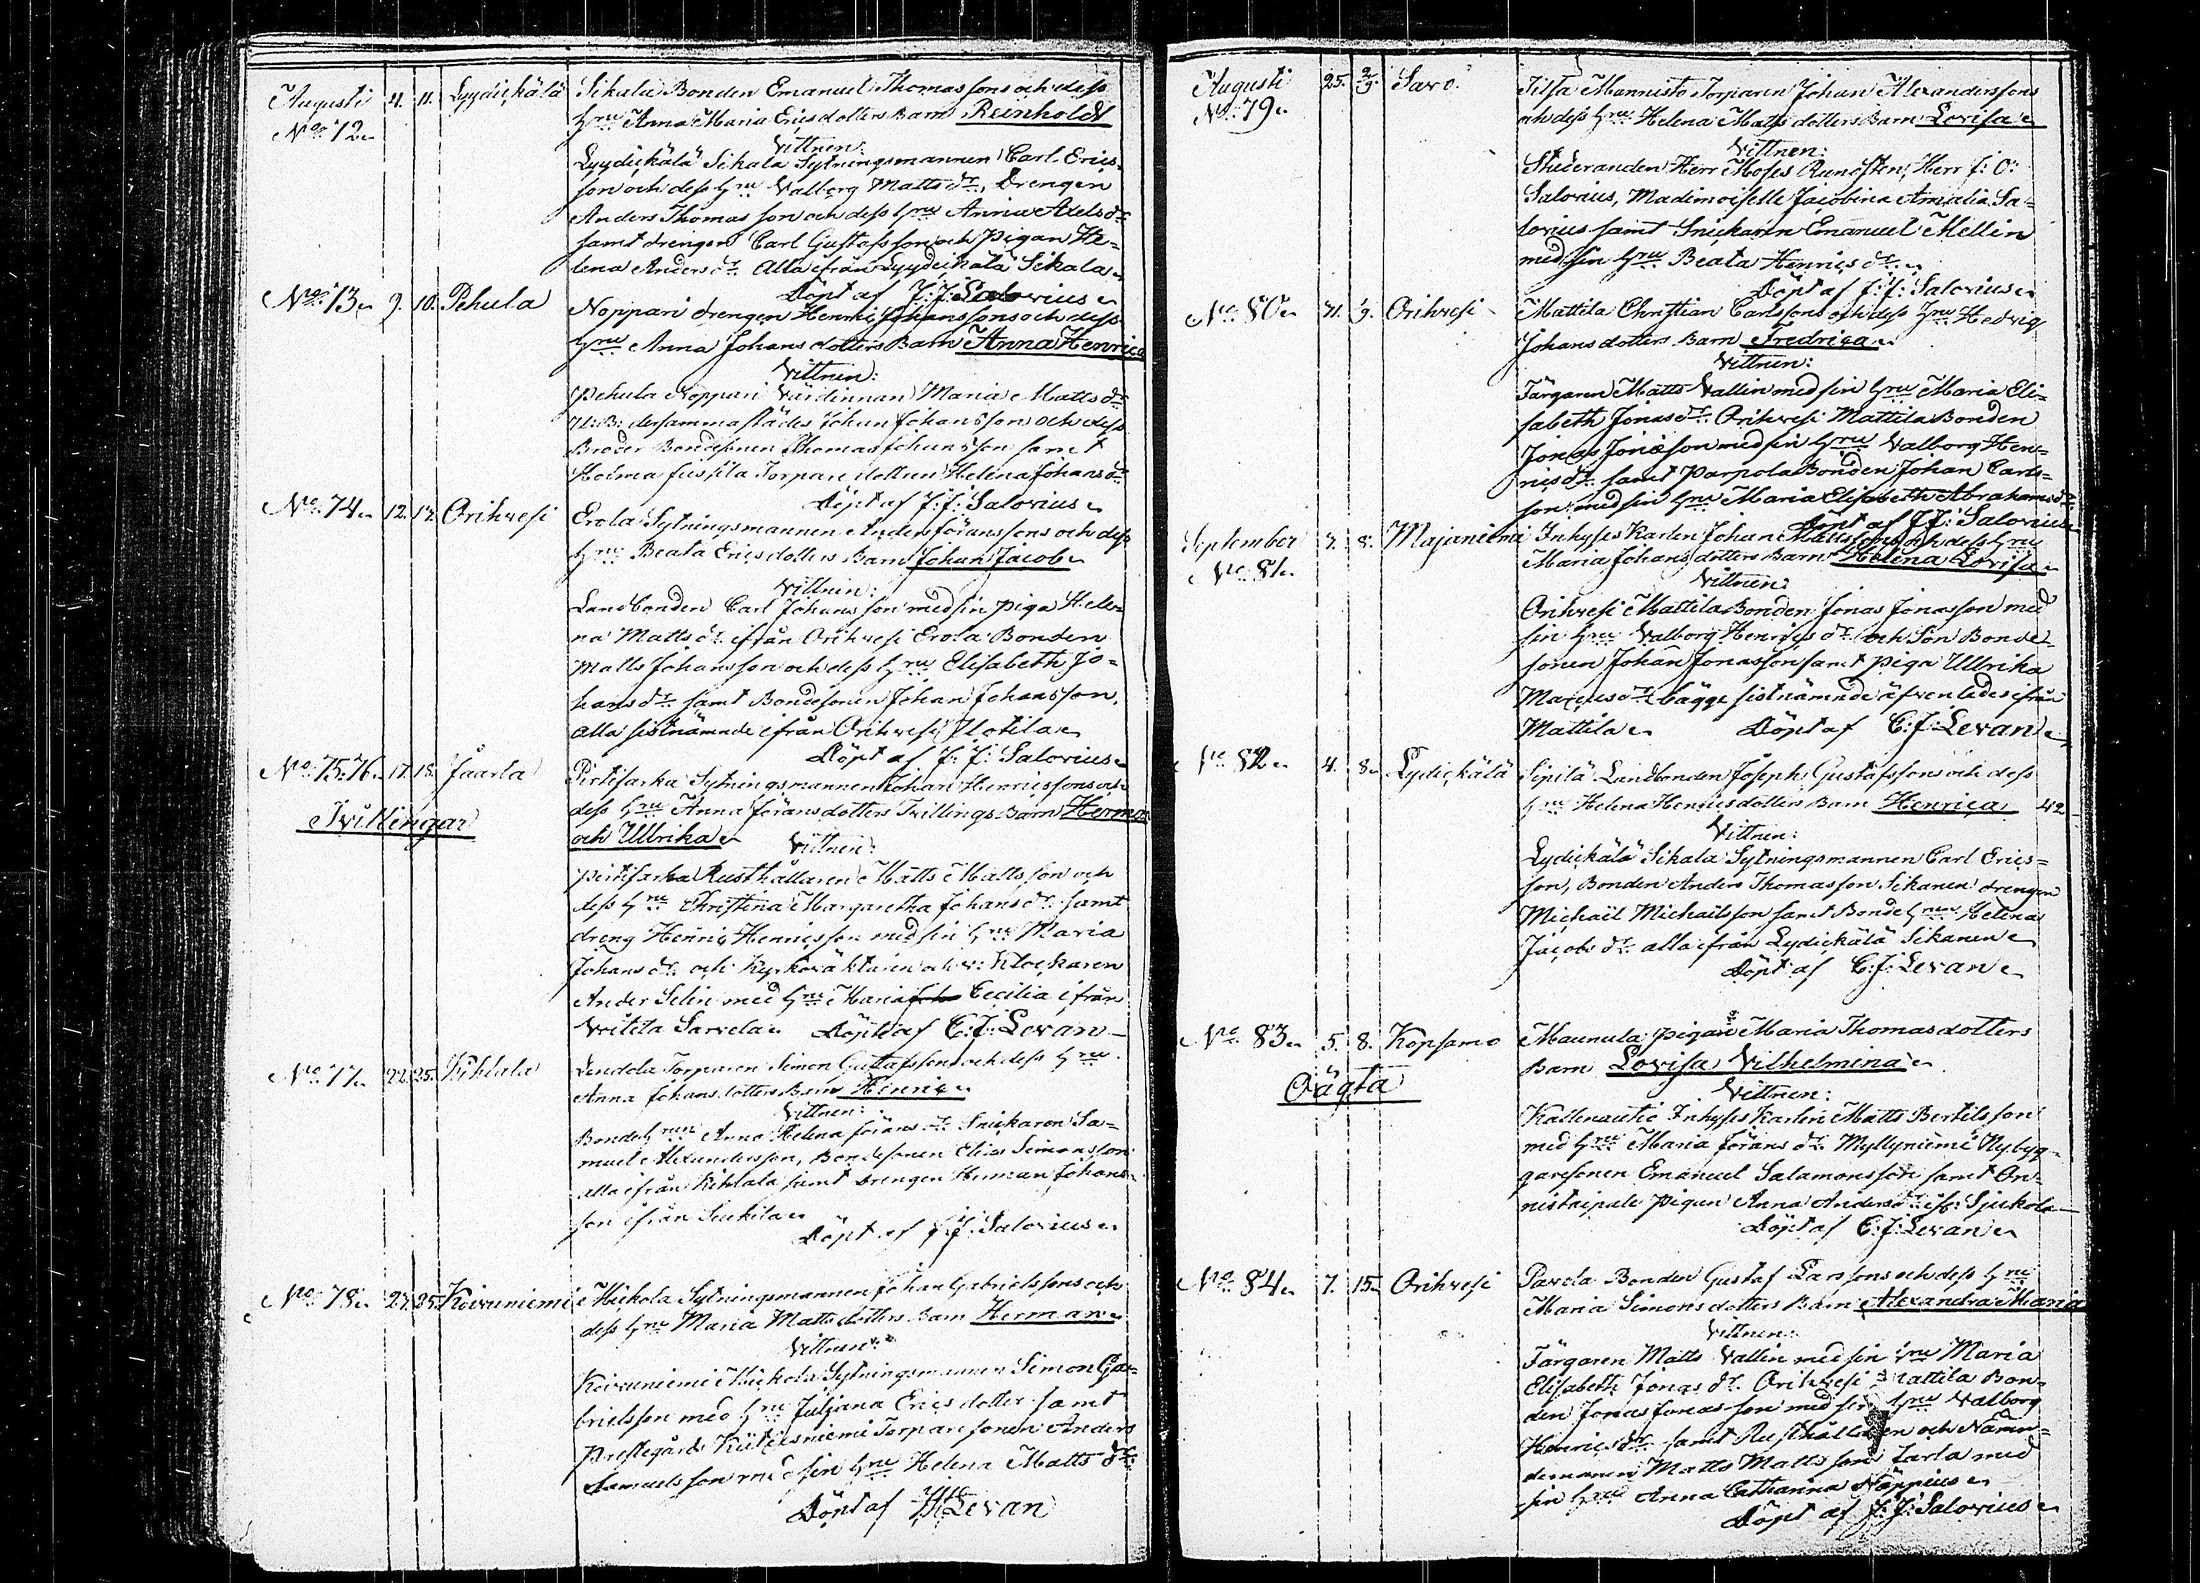 Augusti 4. 11. Lyydickälä Sikala Bonden Emanuel Thomassons och dess
No 72. hru Anna Maria Ericsdotters Barn Reinholdt
Vittnen:
Lyydickälä Sikala Sytningsmannen Carl Erics-
son och dess hru Valborg Matts dr, Drengen
Anders Thomasson och dess hru Anna Axels dr
samt drengen Carl Gustafsson och Pigan He-
lena Anders dr Alla ifrån Lyydickälä Sikala
Döpt af J: J: Salovius
No 73. 9. 10. Pehula Noppari drengen Henric Johanssons och dess
hru Anna Johansdotters Barn Anna Henrica
Vittnen:
Pehula Noppari Värdinnan Maria Matts dr
dersammastädes Johan Johansson och dess
Broder Bondesonen Thomas Johansson samt
Holma Torpare dottren Helena Johans dr
Döpt af J: J: Salovius
No 74. 12. 17. Orihvesi Erola Sytningsmannen Anders Göranssons och dess
hru Beata Ericsdotters Barn Johan Jacob
Vittnen:
Landbonden Carl Johansson med sin piga Hele-
na Matts dr ifrån Orihvesi Erola Bonden
Matts Johansson och dess hru Elisabeth Jo-
hans dr samt Bondesonen Johan Johansson,
alla sistnämnde ifrån Orihvesi
Döpt af J: J: Salovius
No 75. 76. 17. 18. Jaarla Pirttisarka Sytningsmannen Johan Henricssons och
Tvillingar dess hru Anna Göransdotters Tvillings Barn Herman
och Ullrika Vittnen:
Pirttisarka Rusthållaren Matts Mattsson och
dess hru Christina Margaretha Johans dr samt
dreng Henric Henricsson med sin hru Maria
Johans dr och Kyrkoväktaren och v: Klockaren
Ander Selin med hru Maria Cecilia ifrån
Sarvela Döpt af C: J: Levan
No 77. 22. 25. Kihlala Lendola Torparen Simon Gustafssons och dess hru
Anna Johansdotters Barn Henric
Vittnen:
Bonde hrun Anna Helena Görans dr Snickaren Sa-
muel Alexandersson, Bondesonen Elias Simonsson
alla ifrån Kihlala samt drengen Herman Johans-
son ifrån
Döpt af J: J: Salovius
No 78. 23. 25. Koivuniemi Mickola Sytningsmannen Johan Gabrielssons och
dess hru Maria Mattsdotters Barn Herman
Vittnen:
Koivuniemi Mickola Sytningsmannen Simon Ga-
brielsson med hru Juljana Ericsdotter samt
Prestegårds Torparesonen Anders
Samuelsson med sin hru Helena Matts dr
Döpt af Levan
Augusti 25. 2/9. Savo. Mannisto Torparen Johan Alexanderssons
No 79. och dess hru Helena Mattsdotters Barn Lovisa
Vittnen:
Studeranden Herr Moses Runesten, Herr J: O:
Salovius, Mademoiselle Jacobina Amalia Sa-
lovius samt Snickaren Emanuel Mellin
med sin hru Beata Henrics dr
Döpt af J: J: Salovius
No 80. 31. 1/9. Orihvesi Mattila Christian Carlssons och dess hru Hedvig
Johansdotters Barn Fredrica
Vittnen:
Färgaren Matts Vallin med sin hru Maria Eli-
sabeth Jonas dr Orihvesi Mattila Bonden
Jonas Jonasson med sin hru Valborg Hen-
rics dr samt Parpola Bonden Johan Carls-
son med sin hru Maria Elisabeth Abrahams dr
Döpt af J: J: Salovius
September 3. 8. Majaniemi Inhyses Karlen Johan Mattssons och dess hru
No 81. Maria Johansdotters Barn Helena Lovisa
Vittnen:
Orihvesi Mattila Bonden Jonas Jonasson med
sin hru Valborg Henrics dr och Son Bonde-
sonen Johan Jonasson samt piga Ullrika
Marcus dr bägge sistnämnde äfvenledes ifrån
Mattila Döpt af C: J: Levan
No 82. 4. 8. Lydickälä Sipilä Landbonden Joseph Gustafssons och dess
hru Helena Henricsdotters Barn Henrica 42
Vittnen:
Lydickälä Sikala Sytningsmannen Carl Erics-
son, Bonden Anders Thomasson Sikanen drengen
Michaël Michaëlsson samt Bonde hrun Helena
Jacobs dr alla ifrån Lydickälä Sikanen
Döpt af C: J: Levan
No 83. 5. 8. Kopsamo Maunula pigans Maria Thomasdotters
Oägta Barn Lovisa Vilhelmina
Vittnen:
Kallenautio Inhyses Karlen Matts Bertilsson
med hru Maria Görans dr Myllyniemi Nybyg-
garesonen Emanuel Salamonsson samt On-
nistaipale pigan Anna Anders dr ifr: Sjukola
Döpt af C: J: Levan
No 84. 7. 15. Orihvesi Pavola Bonden Gustaf Larssons och dess hru
Maria Simonsdotters Barn Alexandra Maria
Vittnen:
Färgaren Matts Vallin med sin hru Maria
Elisabeth Jonas dr Orihvesi Mattila Bon-
den Jonas Jonasson med sin hru Valborg
Henrics dr samt Rusthållaren och Nämn-
demannen Matts Mattsson Jarla med
sin hru Anna Catharina Näppius
Döpt af J: J: Salovius